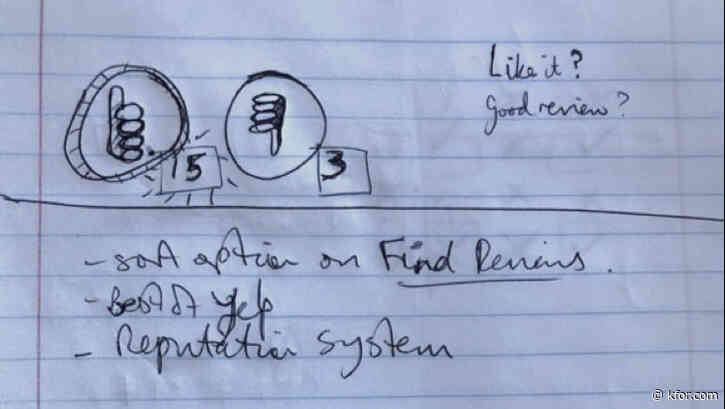 Like it?
Good review?
15
3
- sort option on Find Reviews.
- Best of yelp
- Reputation system
© kfor.com